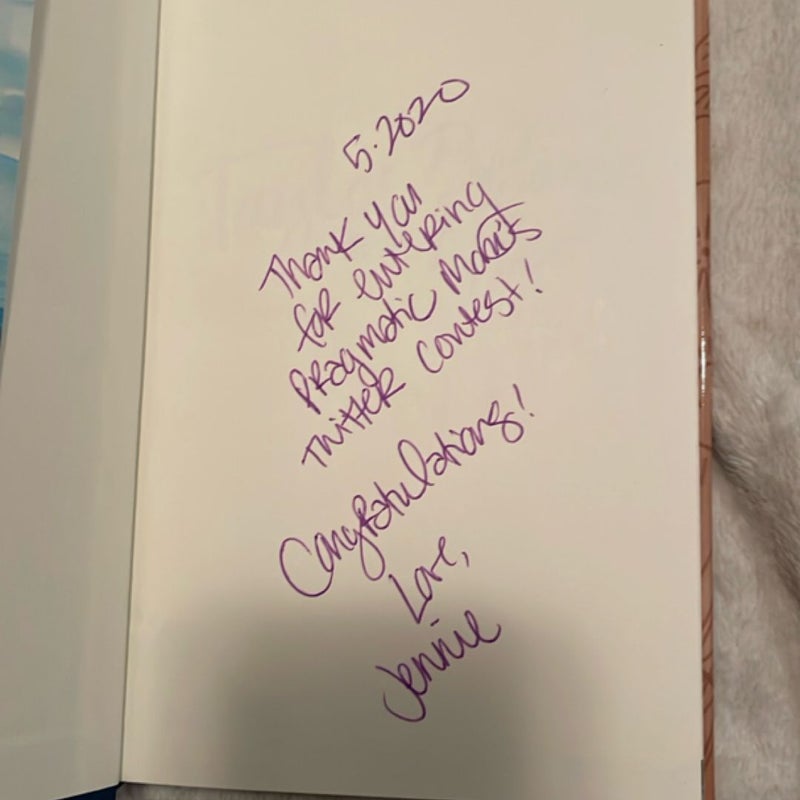 5.2020
Thank you
for entering
Pragmatic Mom's
Twitter contest!
Congratulations!
Love,
Jennie